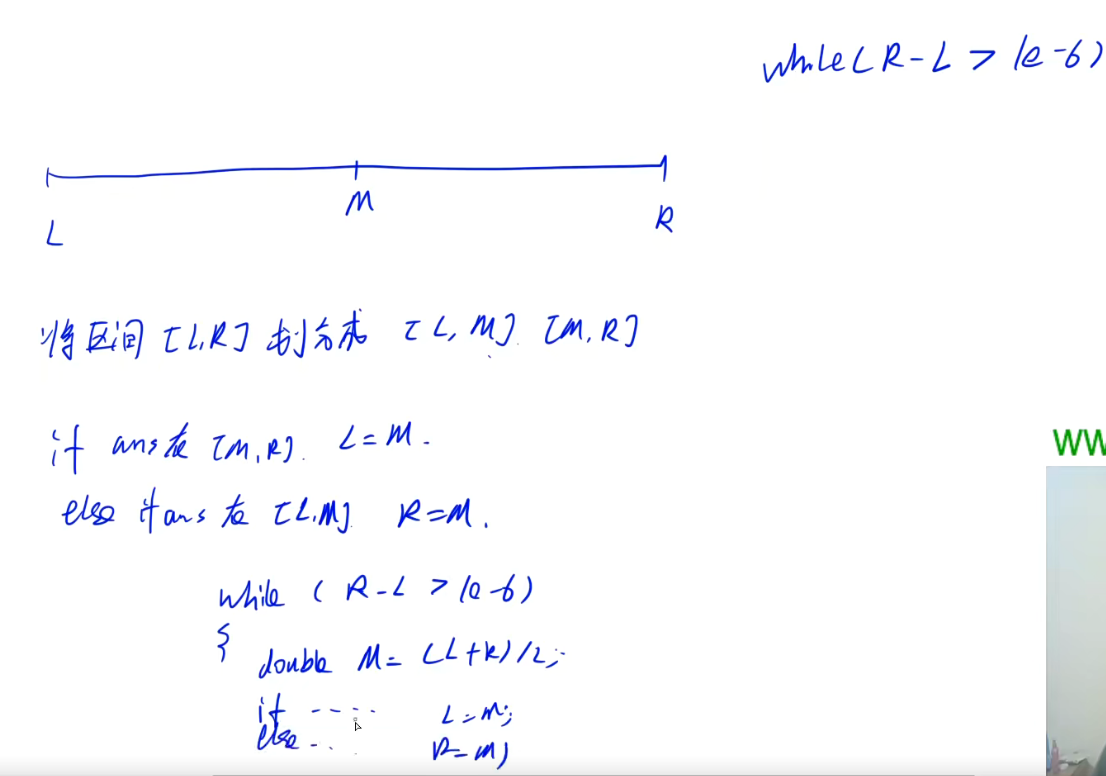 while(R-L > 1e-6)
M
L
R
将区间 [L,R] 划分成 [L, M] [M, R]
if ans在 [M,R]. L=M.
else if ans 在 [L.M] R=M.
WW
while ( R-L > 1e-6)
{
double M= (L+R)/2;
if ---- L=M;
else -.. R=M;